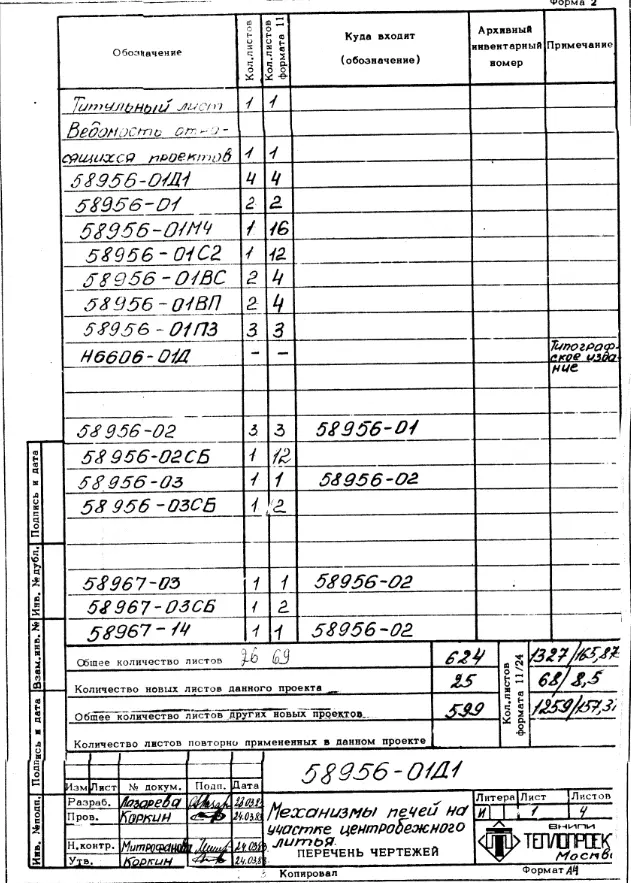 Форма 2
Обозначение Кол.листов Кол.листов формата 11 Куда входит (обозначение) Архивный инвентарный номер Примечание
Титульный лист 1 1
Ведомость
сящихся проектов 1 1
58956-01Д1 4 4
58956-01 2 2
58956-01МЧ 1 16
58956-01С2 1 12
58956-01ВС 2 4
58956-01ВП 2 4
58956-01ПЗ 3 3
Н6606-01Д — — Типограф-
ское изда-
ние
58956-02 3 3 58956-01
58956-02СБ 1 12
58956-03 1 1 58956-02
58956-03СБ 1 2
58967-03 1 1 58956-02
58967-03СБ 1 2
58967-14 1 1 58956-02
Общее количество листов 26 69 624 Кол.листов формата 11/24 1327/165,87
Количество новых листов данного проекта 25 68/8,5
Общее количество листов других новых проектов 599 1259/157,3
Количество листов повторно примененных в данном проекте
Подпись и дата
Инв. № дубл.
Взам.инв. №
Подпись и дата
Инв. № подп.
58956-01Д1
Изм Лист № докум. Подп. Дата
Разраб. Лазарева
Пров. Коркин 24.03.8
Н.контр. Митрофанова 24.03.8
Утв. Коркин 24.03.8
Механизмы печей на
участке центробежного
литья
ПЕРЕЧЕНЬ ЧЕРТЕЖЕЙ
Литера Лист Листов
И 1 4
ВНИПИ
ТЕПЛОПРОЕКТ
Москва
Копировал Формат А4